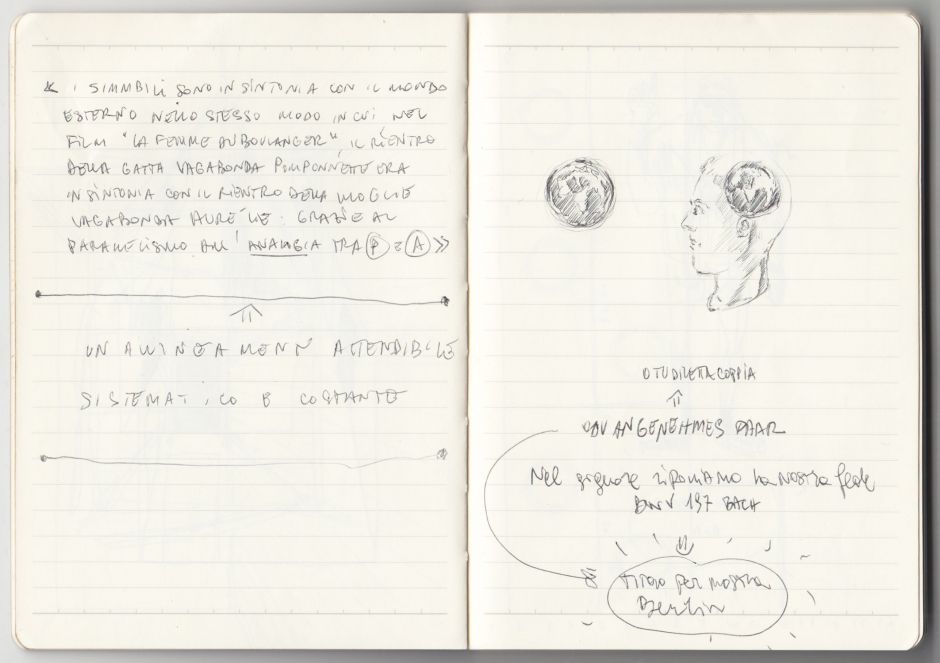 « I SIMMBILI SONO IN SINTONIA CON IL MONDO
ESTERNO NELLO STESSO MODO IN CUI NEL
FILM "LA FEMME DU BOULANGER", IL RIENTRO
DELLA GATTA VAGABONDA POMPONNETTE ERA
IN SINTONIA CON IL RIENTRO DELLA MOGLIE
VAGABONDA AURELIE: GRAZIE AL
PARALLELISMO DELL'ANALOGIA TRA P E A »
UN ALLINEAMENTO ATTENDIBILE
SISTEMATICO E COSTANTE
O TU DILETTA COPPIA
O DU ANGENEHMES PAAR
Nel signore riponiamo la nostra fede
BWV 197 BACH
titolo per mostra
Berlin